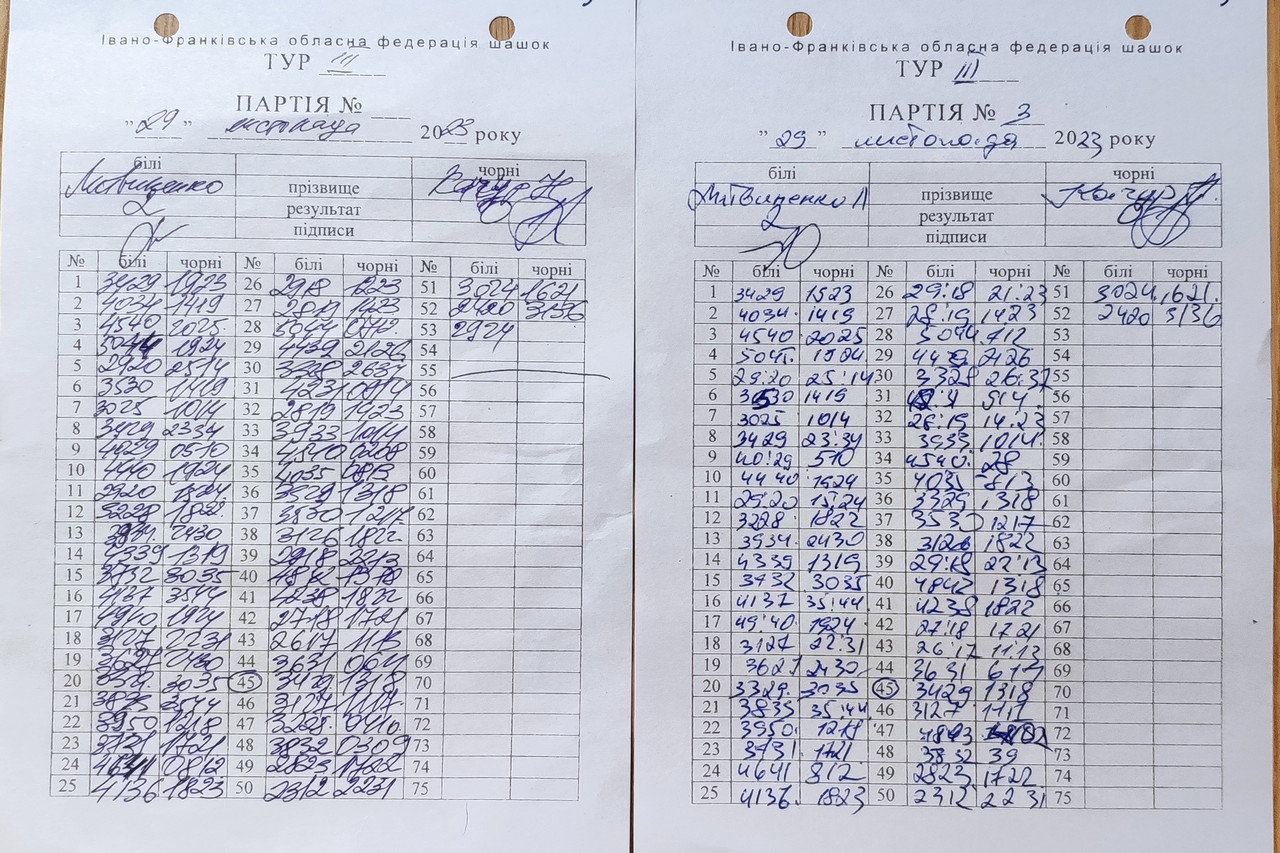 Івано-Франківська обласна федерація шашок
ТУР III
ПАРТІЯ №
"29" листопада 2023 року
білі чорні
прізвище
результат
2
підписи
№ білі чорні № білі чорні № білі чорні
1 3429 1923 26 2918 1223 51 3024 1621
2 4034 1419 27 2819 1423 52 2420 3136
3 4540 2025 28 5044 53 2924
4 1924 29 4439 2126 54
5 2920 2514 30 3328 2637 55
6 3530 1419 31 56
7 3025 1014 32 2819 1923 57
8 3429 2334 33 3933 1014 58
9 0510 34 4540 0208 59
10 4440 1924 35 4035 0813 60
11 2920 36 1318 61
12 3228 1822 37 3530 1217 62
13 2430 38 3126 1822 63
14 4339 1319 39 2918 2213 64
15 3732 3035 40 1318 65
16 4137 3544 41 4238 1822 66
17 1924 42 2718 1721 67
18 3127 2231 43 2617 1113 68
19 3627 2430 44 3631 69
20 3035 45 3429 1318 70
21 3544 46 3127 71
22 3950 1218 47 72
23 3731 1721 48 3832 0309 73
24 4641 0812 49 2823 1722 74
25 4136 1823 50 2312 2231 75
Івано-Франківська обласна федерація шашок
ТУР III
ПАРТІЯ № 3
"29" листопада 2023 року
білі чорні
прізвище Качур
результат
2
підписи
№ білі чорні № білі чорні № білі чорні
1 3429 1523 26 29:18 21:23 51 3024 1621.
2 4034 1419 27 28:19 1423 52 2420 3136
3 4540 2025 28 5044 712 53
4 5045 1924 29 4439 2126 54
5 29:20 25:14 30 3328 26:37 55
6 1419 31 914 56
7 3025 1014 32 28:19 14:23 57
8 3429 23:34 33 3933 1014 58
9 40:29 510 34 4540 28 59
10 4440 1924 35 4035 813 60
11 29:20 15:24 36 3329 1318 61
12 3228 1822 37 3530 1217 62
13 3934 2430 38 3126 1822 63
14 4339 1319 39 29:18 22:13 64
15 3732 3035 40 4842 1318 65
16 4137 35:44 41 4238 1822 66
17 49:40 1924 42 27:18 1721 67
18 3127 22:31 43 26:17 11:13 68
19 3627 2430 44 3631 617 69
20 3329 3035 45 3429 1318 70
21 3835 35:44 46 3127 71
22 3950 1218 47 4843 72
23 3731 1721 48 3832 39 73
24 4641 812 49 2823 1722 74
25 4136 1823 50 2312 2231 75